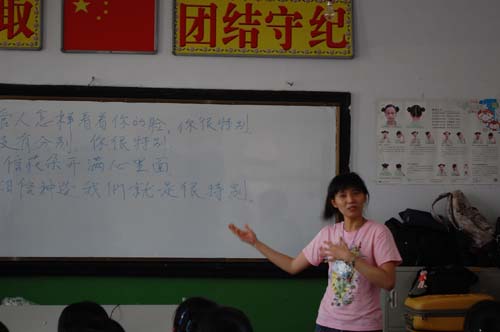 取
团结守纪
管人怎样看着你的脸，你很特别
没有分别，你很特别
信萩朵开满心里面
相信种出我們就是很特别。